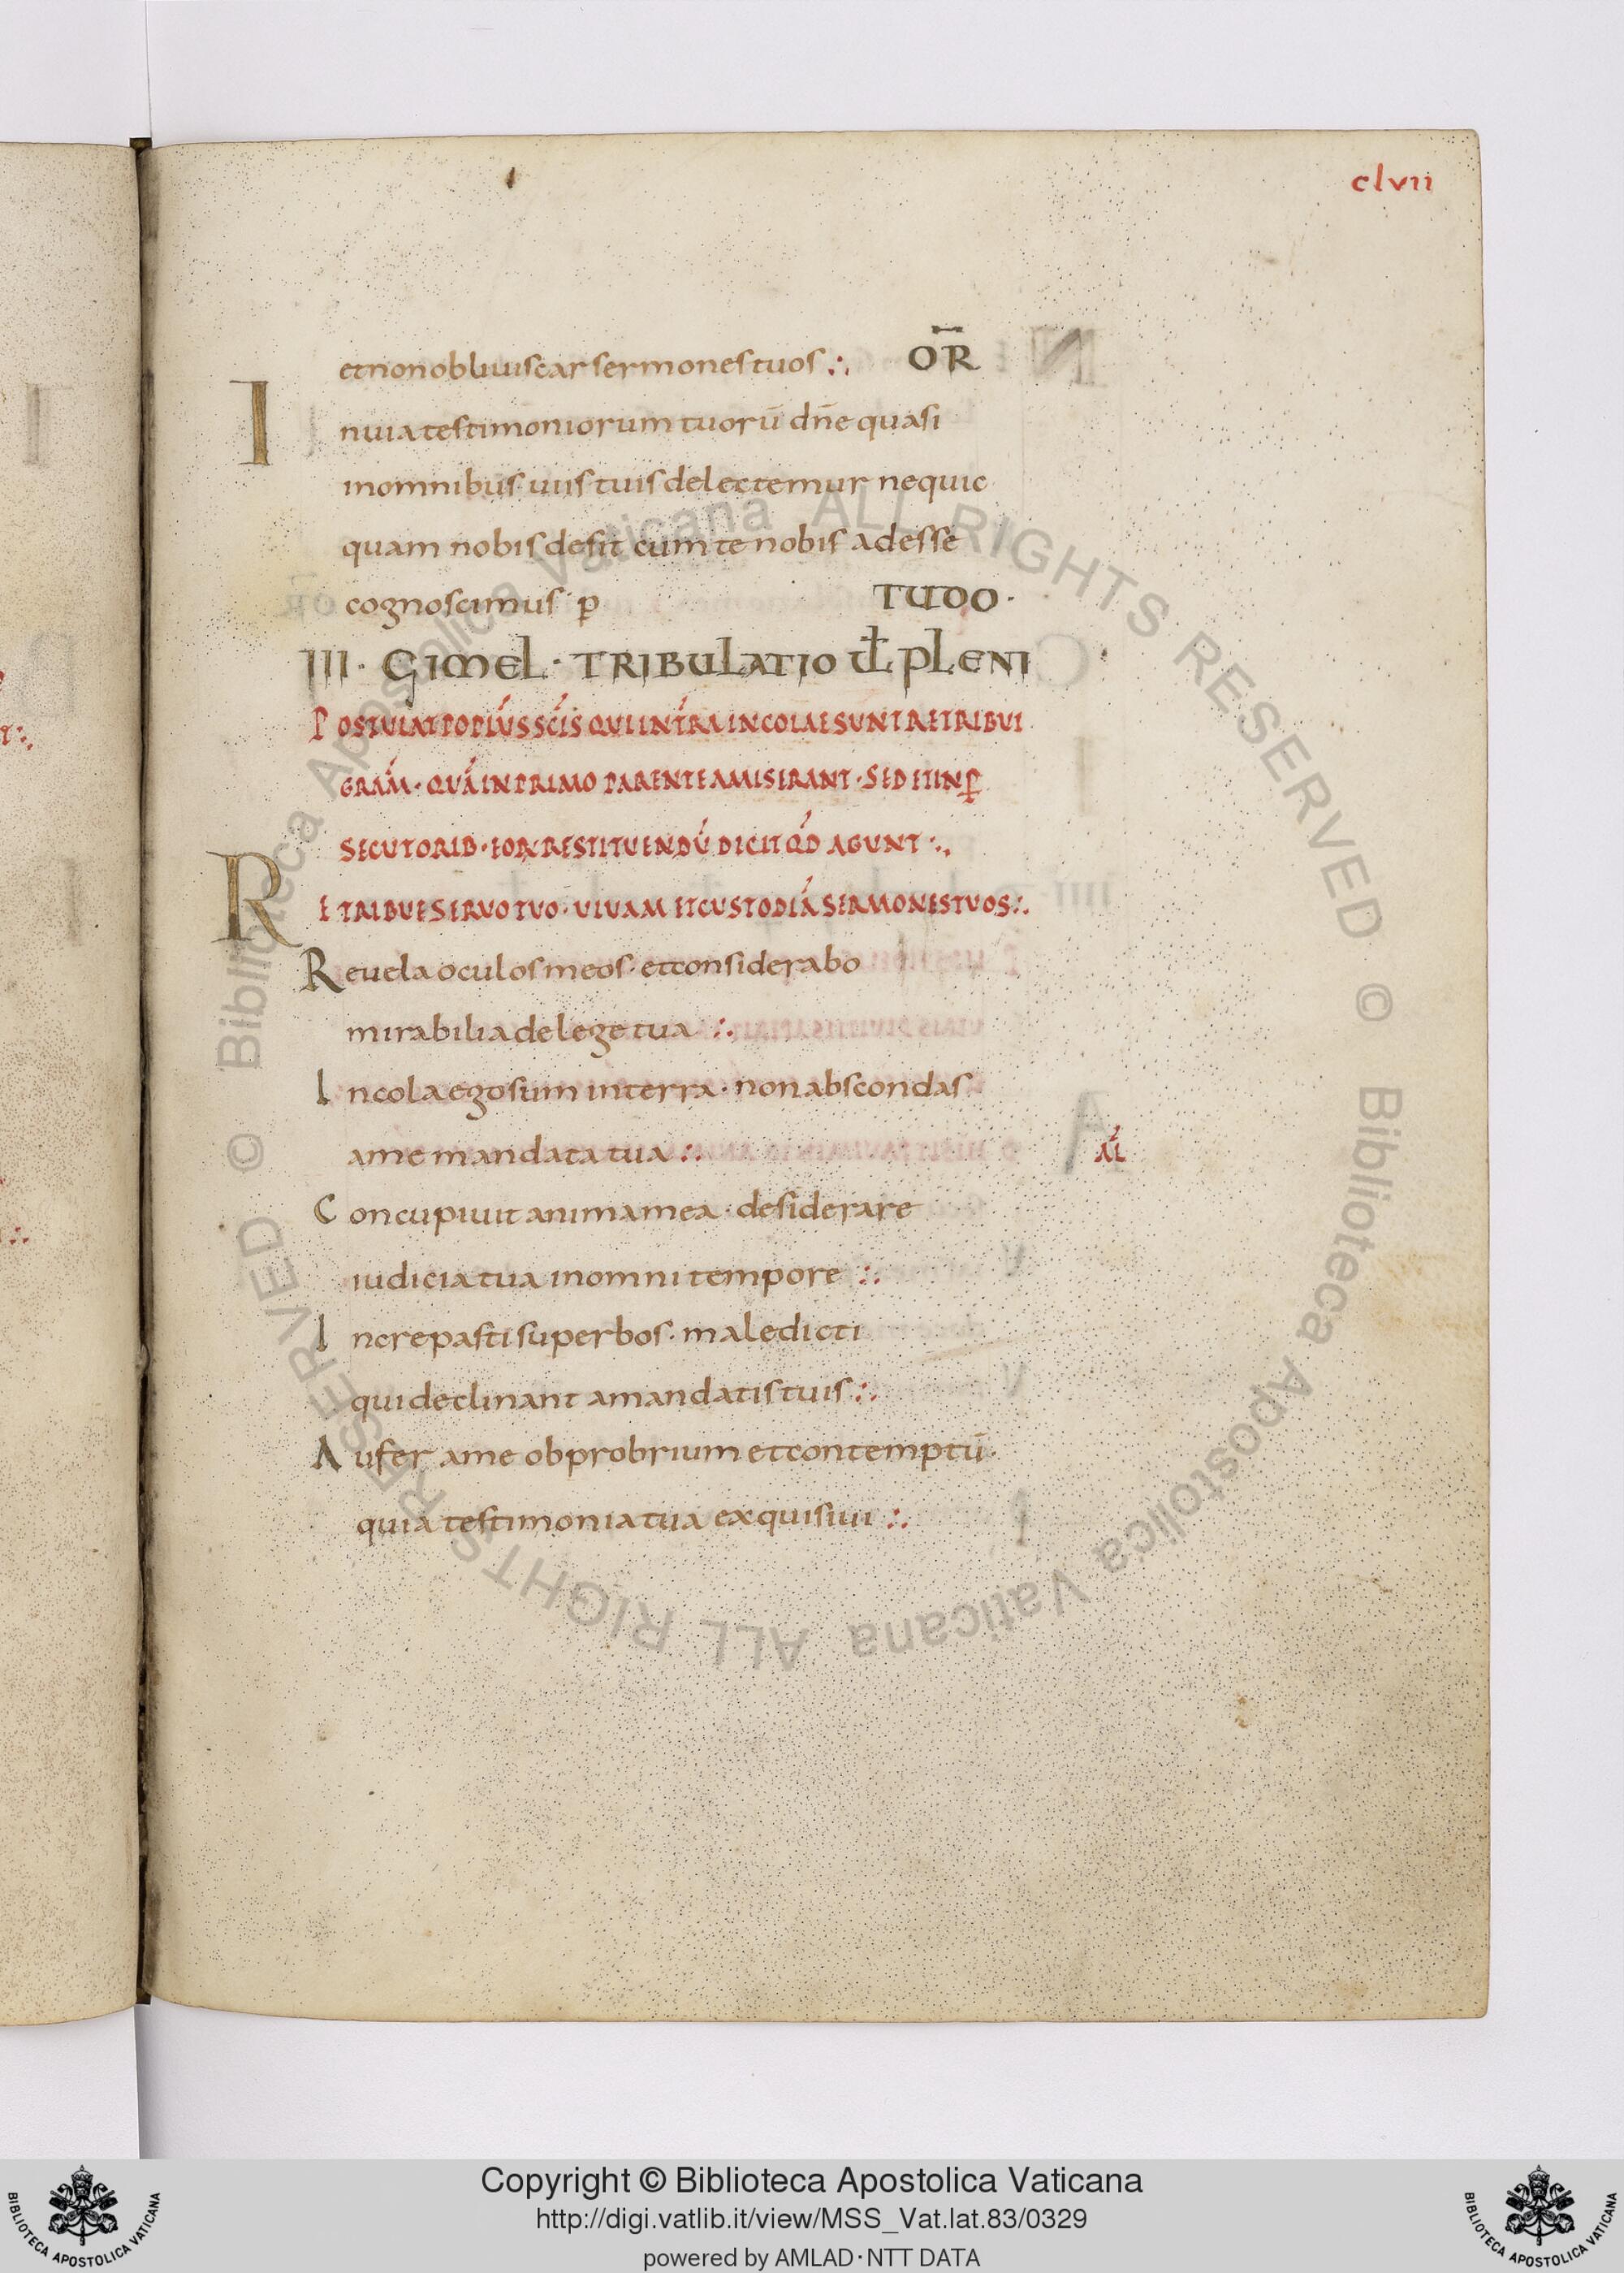 clvii
et non obliuiscar sermones tuos ∴ OR̄
In uia testimoniorum tuorū dn̄e quasi
in omnibus uiis tuis delectemur ne quic
quam nobis desit cum te nobis adesse
cognoscimus p TUDO ·
III · GIMEL · TRIBULATIO UL̄ PLENI
POSTULAT POPLUS SCIS QUI IN TRA INCOLAE SUNT RETRIBUI
GRAM · QUA IN PRIMO PARENTE AMISERANT · SED ET IN P
SECUTORIB · EOR RESTITUENDU DICIT QD AGUNT ∴
RETRIBUE SERUO TUO · UIUAM ET CUSTODIA SERMONES TUOS ∴
Reuela oculos meos · et considerabo
mirabilia de lege tua ∴
Incola ego sum in terra · non abscondas
a me mandata tua ∴ AL
Concupiuit anima mea · desiderare
iudicia tua in omni tempore ∴
Increpasti superbos · maledicti
qui declinant a mandatis tuis ∴
Aufer a me obprobrium et contemptū ·
quia testimonia tua exquisiui ∴
© Biblioteca Apostolica Vaticana ALL RIGHTS RESERVED © Biblioteca Apostolica Vaticana ALL RIGHTS RESERVED
Copyright © Biblioteca Apostolica Vaticana
http://digi.vatlib.it/view/MSS_Vat.lat.83/0329
powered by AMLAD·NTT DATA
BIBLIOTECA APOSTOLICA VATICANA
BIBLIOTECA APOSTOLICA VATICANA